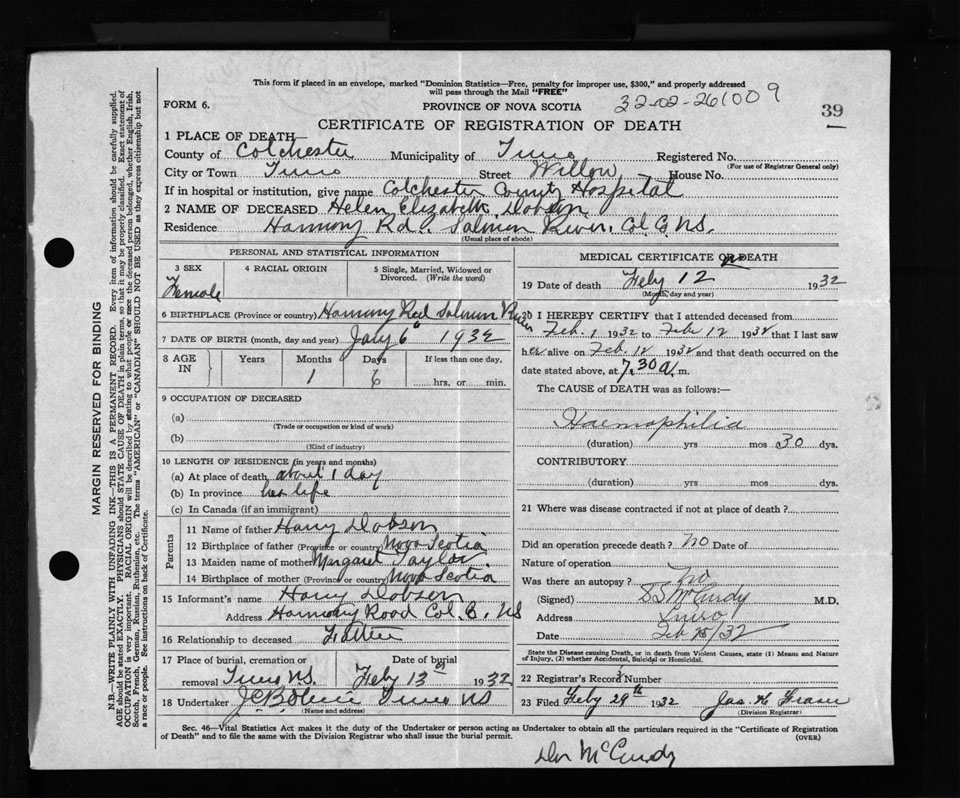 This form if placed in an envelope, marked "Dominion Statistics—Free, penalty for improper use, $300," and properly addressed
will pass through the Mail "FREE"
FORM 6.
PROVINCE OF NOVA SCOTIA
32-02-261009
39
CERTIFICATE OF REGISTRATION OF DEATH
1 PLACE OF DEATH—
County of Colchester Municipality of Truro Registered No.
(For use of Registrar General only)
City or Town Truro Street Willow House No.
If in hospital or institution, give name Colchester County Hospital
2 NAME OF DECEASED Helen Elizabeth Dobson
Residence Harmony Rd. Salmon River, Col. Co. NS.
(Usual place of abode)
PERSONAL AND STATISTICAL INFORMATION
3 SEX 4 RACIAL ORIGIN 5 Single, Married, Widowed or
Divorced. (Write the word)
Female
6 BIRTHPLACE (Province or country) Harmony Road Salmon River
7 DATE OF BIRTH (month, day and year) Jany 6 1932
8 AGE IN Years Months Days If less than one day,
1 6 hrs. or min.
9 OCCUPATION OF DECEASED
(a)
(Trade or occupation or kind of work)
(b)
(Kind of industry)
10 LENGTH OF RESIDENCE (in years and months)
(a) At place of death about 1 day
(b) In province her life
(c) In Canada (if an immigrant)
Parents
11 Name of father Harry Dobson
12 Birthplace of father (Province or country) Nova Scotia
13 Maiden name of mother Margaret Taylor
14 Birthplace of mother (Province or country) Nova Scotia
15 Informant's name Harry Dobson
Address Harmony Road Col. Co. NS
16 Relationship to deceased Father
17 Place of burial, cremation or Date of burial
removal Truro NS. Feby 13th 1932
18 Undertaker Truro NS
(Name and address)
MEDICAL CERTIFICATE OF DEATH
19 Date of death Feby 12 1932
(Month, day and year)
20 I HEREBY CERTIFY that I attended deceased from
Feb. 1 1932 to Feb 12 1932 that I last saw
her alive on Feb. 12 1932 and that death occurred on the
date stated above, at 7.30 a. m.
The CAUSE OF DEATH was as follows:—
Haemophilia
(duration) yrs mos 30 dys.
CONTRIBUTORY
(duration) yrs mos dys.
21 Where was disease contracted if not at place of death?
Did an operation precede death? No Date of
Nature of operation
Was there an autopsy? No
(Signed) McCurdy M.D.
Address Truro
Date Feb 25/32
State the Disease causing Death, or in death from Violent Causes, state (1) Means and Nature
of Injury, (2) whether Accidental, Suicidal or Homicidal.
22 Registrar's Record Number
23 Filed Feby 29th 1932 Jas H Fraser
(Division Registrar)
Sec. 46—Vital Statistics Act makes it the duty of the Undertaker or person acting as Undertaker to obtain all the particulars required in the "Certificate of Registration
of Death" and to file the same with the Division Registrar who shall issue the burial permit.
(OVER)
Dr McCurdy
MARGIN RESERVED FOR BINDING
N.B.—WRITE PLAINLY WITH UNFADING INK—THIS IS A PERMANENT RECORD. Every item of information should be carefully supplied.
AGE should be stated EXACTLY. PHYSICIANS should STATE CAUSE OF DEATH in plain terms, so that it may be properly classified. Exact statement of
OCCUPATION is very important. RACIAL ORIGIN will be described by stating to what people or race the deceased person belonged, whether English, Irish,
Scotch, French, German, Russian, Ruthenian, etc. The terms "AMERICAN" or "CANADIAN" SHOULD NOT BE USED as they express citizenship but not
a race or people. See instructions on back of Certificate.